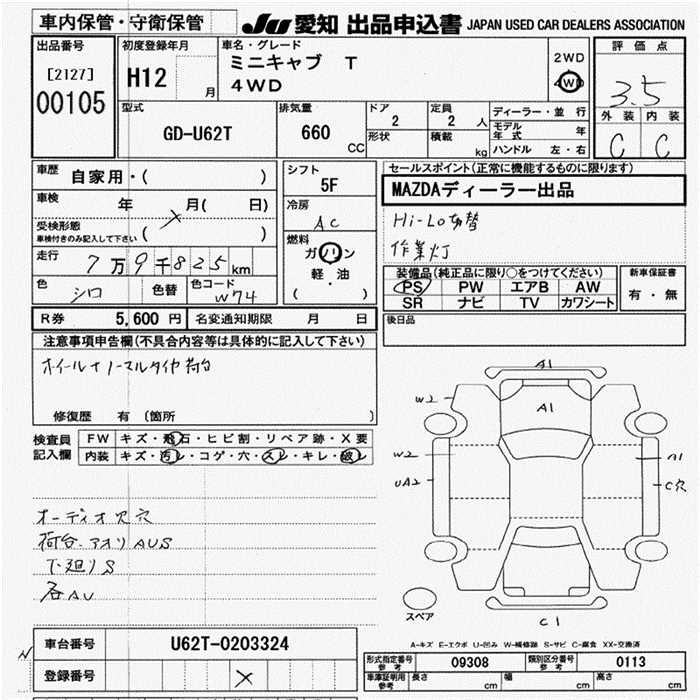 車内保管・守衛保管
JU 愛知 出品申込書 JAPAN USED CAR DEALERS ASSOCIATION
出品番号
[2127]
00105
初度登録年月
H12 月
車名・グレード
ミニキャブ T
4WD
2WD
4WD
評価点
3.5
外装 内装
C C
型式
GD-U62T
排気量
660 CC
ドア
2
形状
定員
2 人
積載 kg
ディーラー・並行
モデル年式 年
ハンドル 左・右
車歴
自家用・( )
車検 年 月( 日)
受検形態
車検付きのみ記入して下さい ( )
走行 7万9千825km
色 シロ 色替 色コード W74
シフト
5F
冷房
AC
燃料
ガソリン
軽・油
( )
セールスポイント(正常に機能するものに限ります)
MAZDAディーラー出品
Hi-Lo切替
作業灯
装備品(純正品に限り○をつけてください)
PS PW エアB AW
SR ナビ TV カワシート
新車保証書
有・無
後日品
R券 5,600 円 名変通知期限 月 日
注意事項申告欄(不具合内容等は具体的に記入して下さい)
ホイールナノーマルタイヤ荷台
修復歴 有 〔箇所 〕
検査員記入欄
FW キズ・飛石・ヒビ割・リペア跡・X要
内装 キズ・汚レ・コゲ・穴・スレ・キレ・破レ
オーディオ欠穴
荷台.アオリAUS
下廻りS
各AU
A1
W2
A1
W2
UA2
A1
C穴
スペア
C1
A-キズ E-エクボ U-凹み W-補修跡 S-サビ C-腐食 XX-交換済
車台番号 U62T-0203324
登録番号
形式指定番号 参考 09308 類別区分番号 参考 0113
車庫証明用 参考 長さ cm 幅 cm 高さ cm